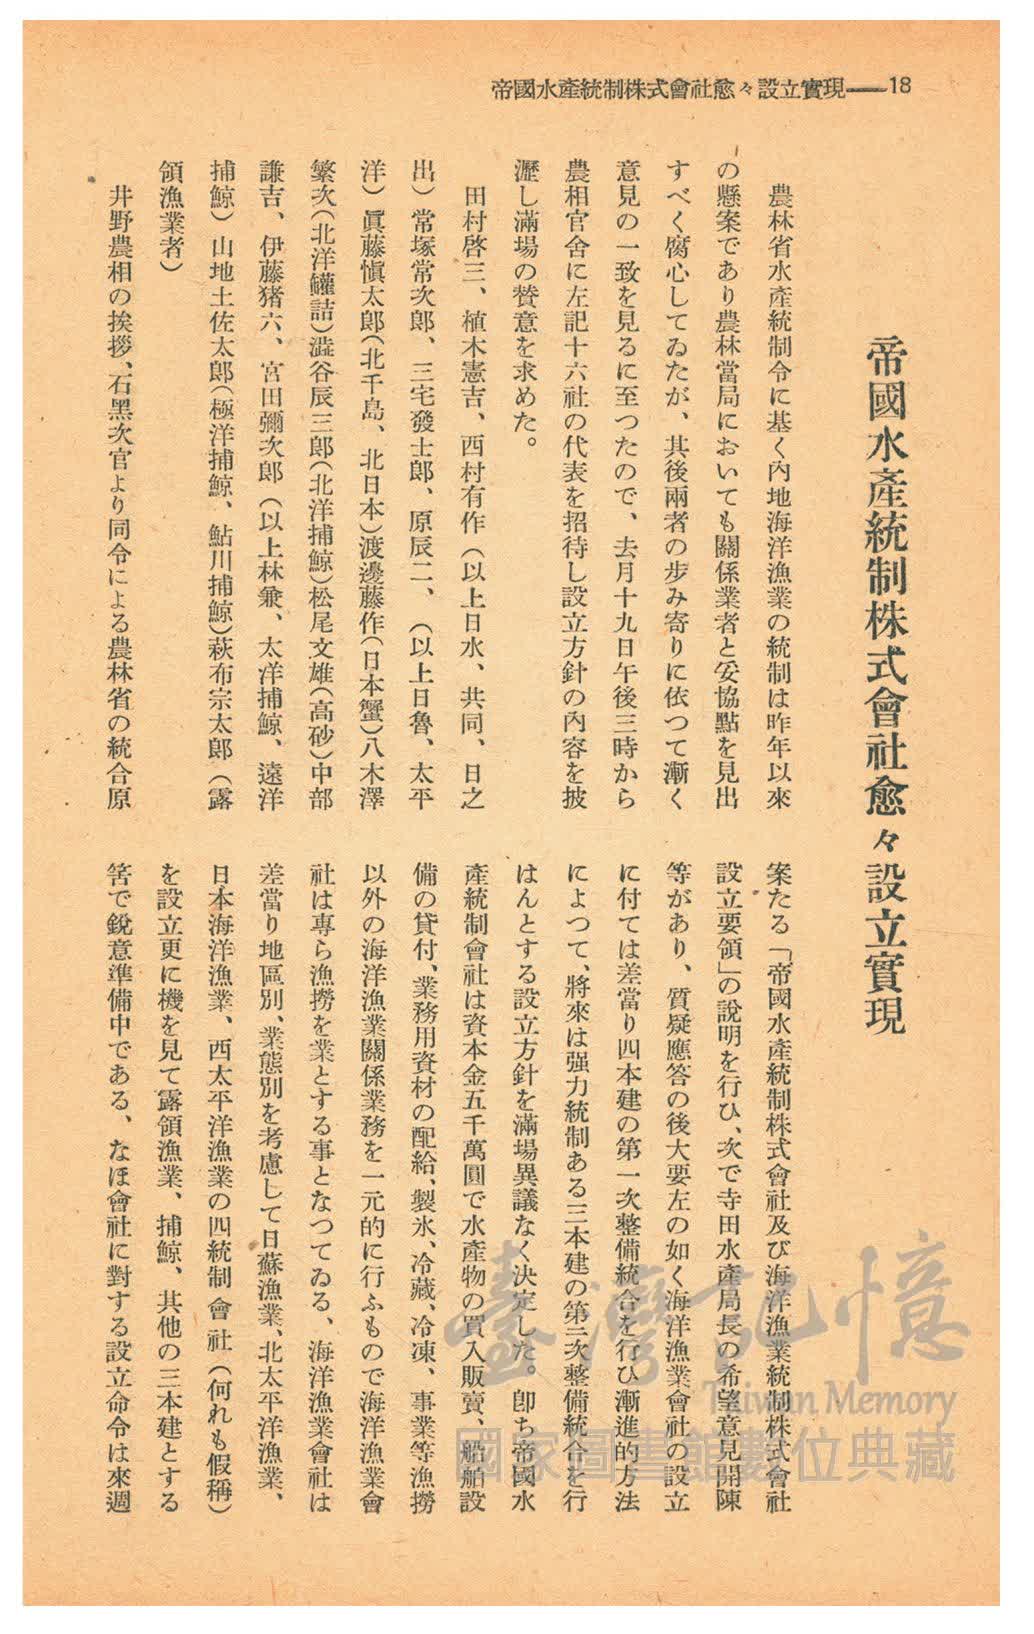 帝國水產統制株式會社愈々設立實現——18
帝國水產統制株式會社愈々設立實現
農林省水產統制令に基く內地海洋漁業の統制は昨年以來
の懸案であり農林當局においても關係業者と妥協點を見出
すべく腐心してゐたが、其後兩者の步み寄りに依つて漸く
意見の一致を見るに至つたので、去月十九日午後三時から
農相官舍に左記十六社の代表を招待し設立方針の內容を披
瀝し滿場の贊意を求めた。
田村啓三、植木憲吉、西村有作（以上日水、共同、日之
出）常塚常次郎、三宅發士郎、原辰二、（以上日魯、太平
洋）眞藤愼太郎（北千島、北日本）渡邊藤作（日本蟹）八木澤
繁次（北洋罐詰）澁谷辰三郎（北洋捕鯨）松尾文雄（高砂）中部
謙吉、伊藤猪六、宮田彌次郎（以上林兼、太洋捕鯨、遠洋
捕鯨）山地土佐太郎（極洋捕鯨、鮎川捕鯨）萩布宗太郎（露
領漁業者）
井野農相の挨拶、石黑次官より同令による農林省の統合原
案たる「帝國水產統制株式會社及び海洋漁業統制株式會社
設立要領」の說明を行ひ、次で寺田水產局長の希望意見開陳
等があり、質疑應答の後大要左の如く海洋漁業會社の設立
に付ては差當り四本建の第一次整備統合を行ひ漸進的方法
によつて、將來は强力統制ある三本建の第二次整備統合を行
はんとする設立方針を滿場異議なく決定した。卽ち帝國水
產統制會社は資本金五千萬圓で水產物の買入販賣、船舶設
備の貸付、業務用資材の配給、製氷、冷藏、冷凍、事業等漁撈
以外の海洋漁業關係業務を一元的に行ふもので海洋漁業會
社は專ら漁撈を業とする事となつてゐる、海洋漁業會社は
差當り地區別、業態別を考慮して日蘇漁業、北太平洋漁業、
日本海洋漁業、西太平洋漁業の四統制會社（何れも假稱）
を設立更に機を見て露領漁業、捕鯨、其他の三本建とする
筈で銳意準備中である、なほ會社に對する設立命令は來週
臺灣記憶
Taiwan Memory
國家圖書館數位典藏